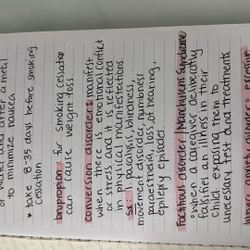 of water and after a meal
minimize nausea
* take 8-35 days before smoking
cessation
bupropion: for smoking cessation
can cause weight loss
conversion disorder: manifest
when there is emotional conflict
or stress and it is reflected
in physical manifestations
s&s: paralysis, blindness,
movement disorder, numbness
paresthesia, loss of hearing,
epilepsy episodes
Factitious disorder/Munchausen Syndrome
"when a caregiver deliberately
falsifies an illness in their
child exposing them to
unnecesary test and treatments